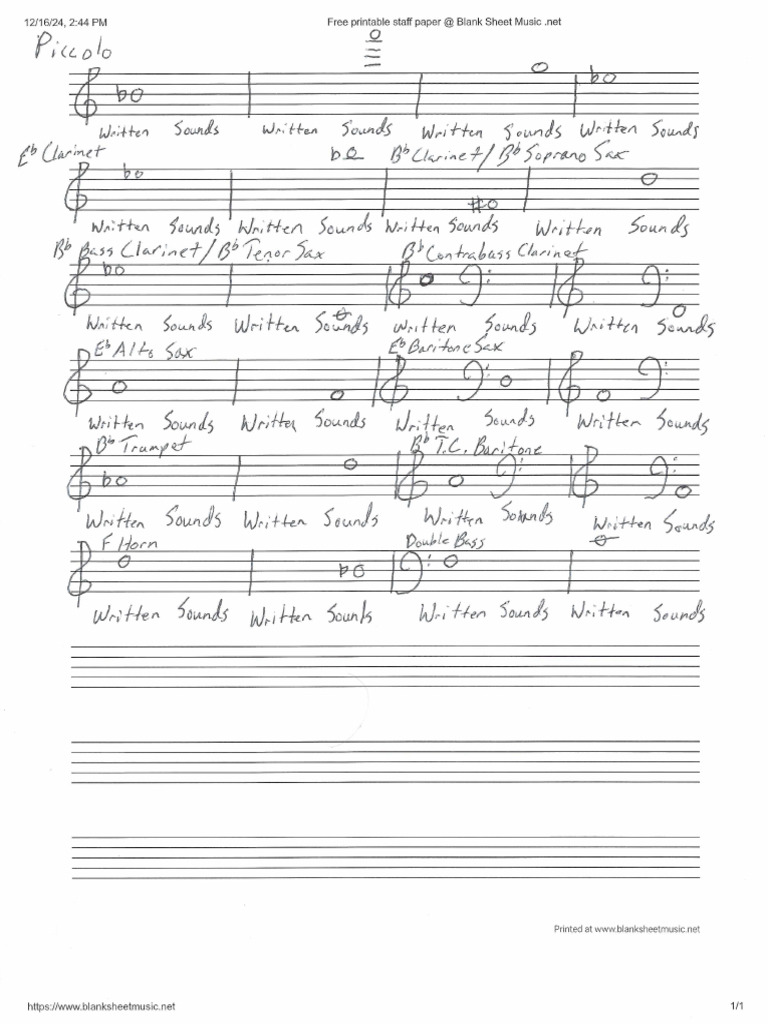 12/16/24, 2:44 PM Free printable staff paper @ Blank Sheet Music .net
Piccolo
Written Sounds Written Sounds Written Sounds Written Sounds
E♭ Clarinet B♭ Clarinet / B♭ Soprano Sax
Written Sounds Written Sounds Written Sounds Written Sounds
B♭ Bass Clarinet / B♭ Tenor Sax B♭ Contrabass Clarinet
Written Sounds Written Sounds Written Sounds Written Sounds
E♭ Alto Sax E♭ Baritone Sax
Written Sounds Written Sounds Written Sounds Written Sounds
B♭ Trumpet B♭ T.C. Baritone
Written Sounds Written Sounds Written Sounds Written Sounds
F Horn Double Bass
Written Sounds Written Sounds Written Sounds Written Sounds
Printed at www.blanksheetmusic.net
https://www.blanksheetmusic.net 1/1